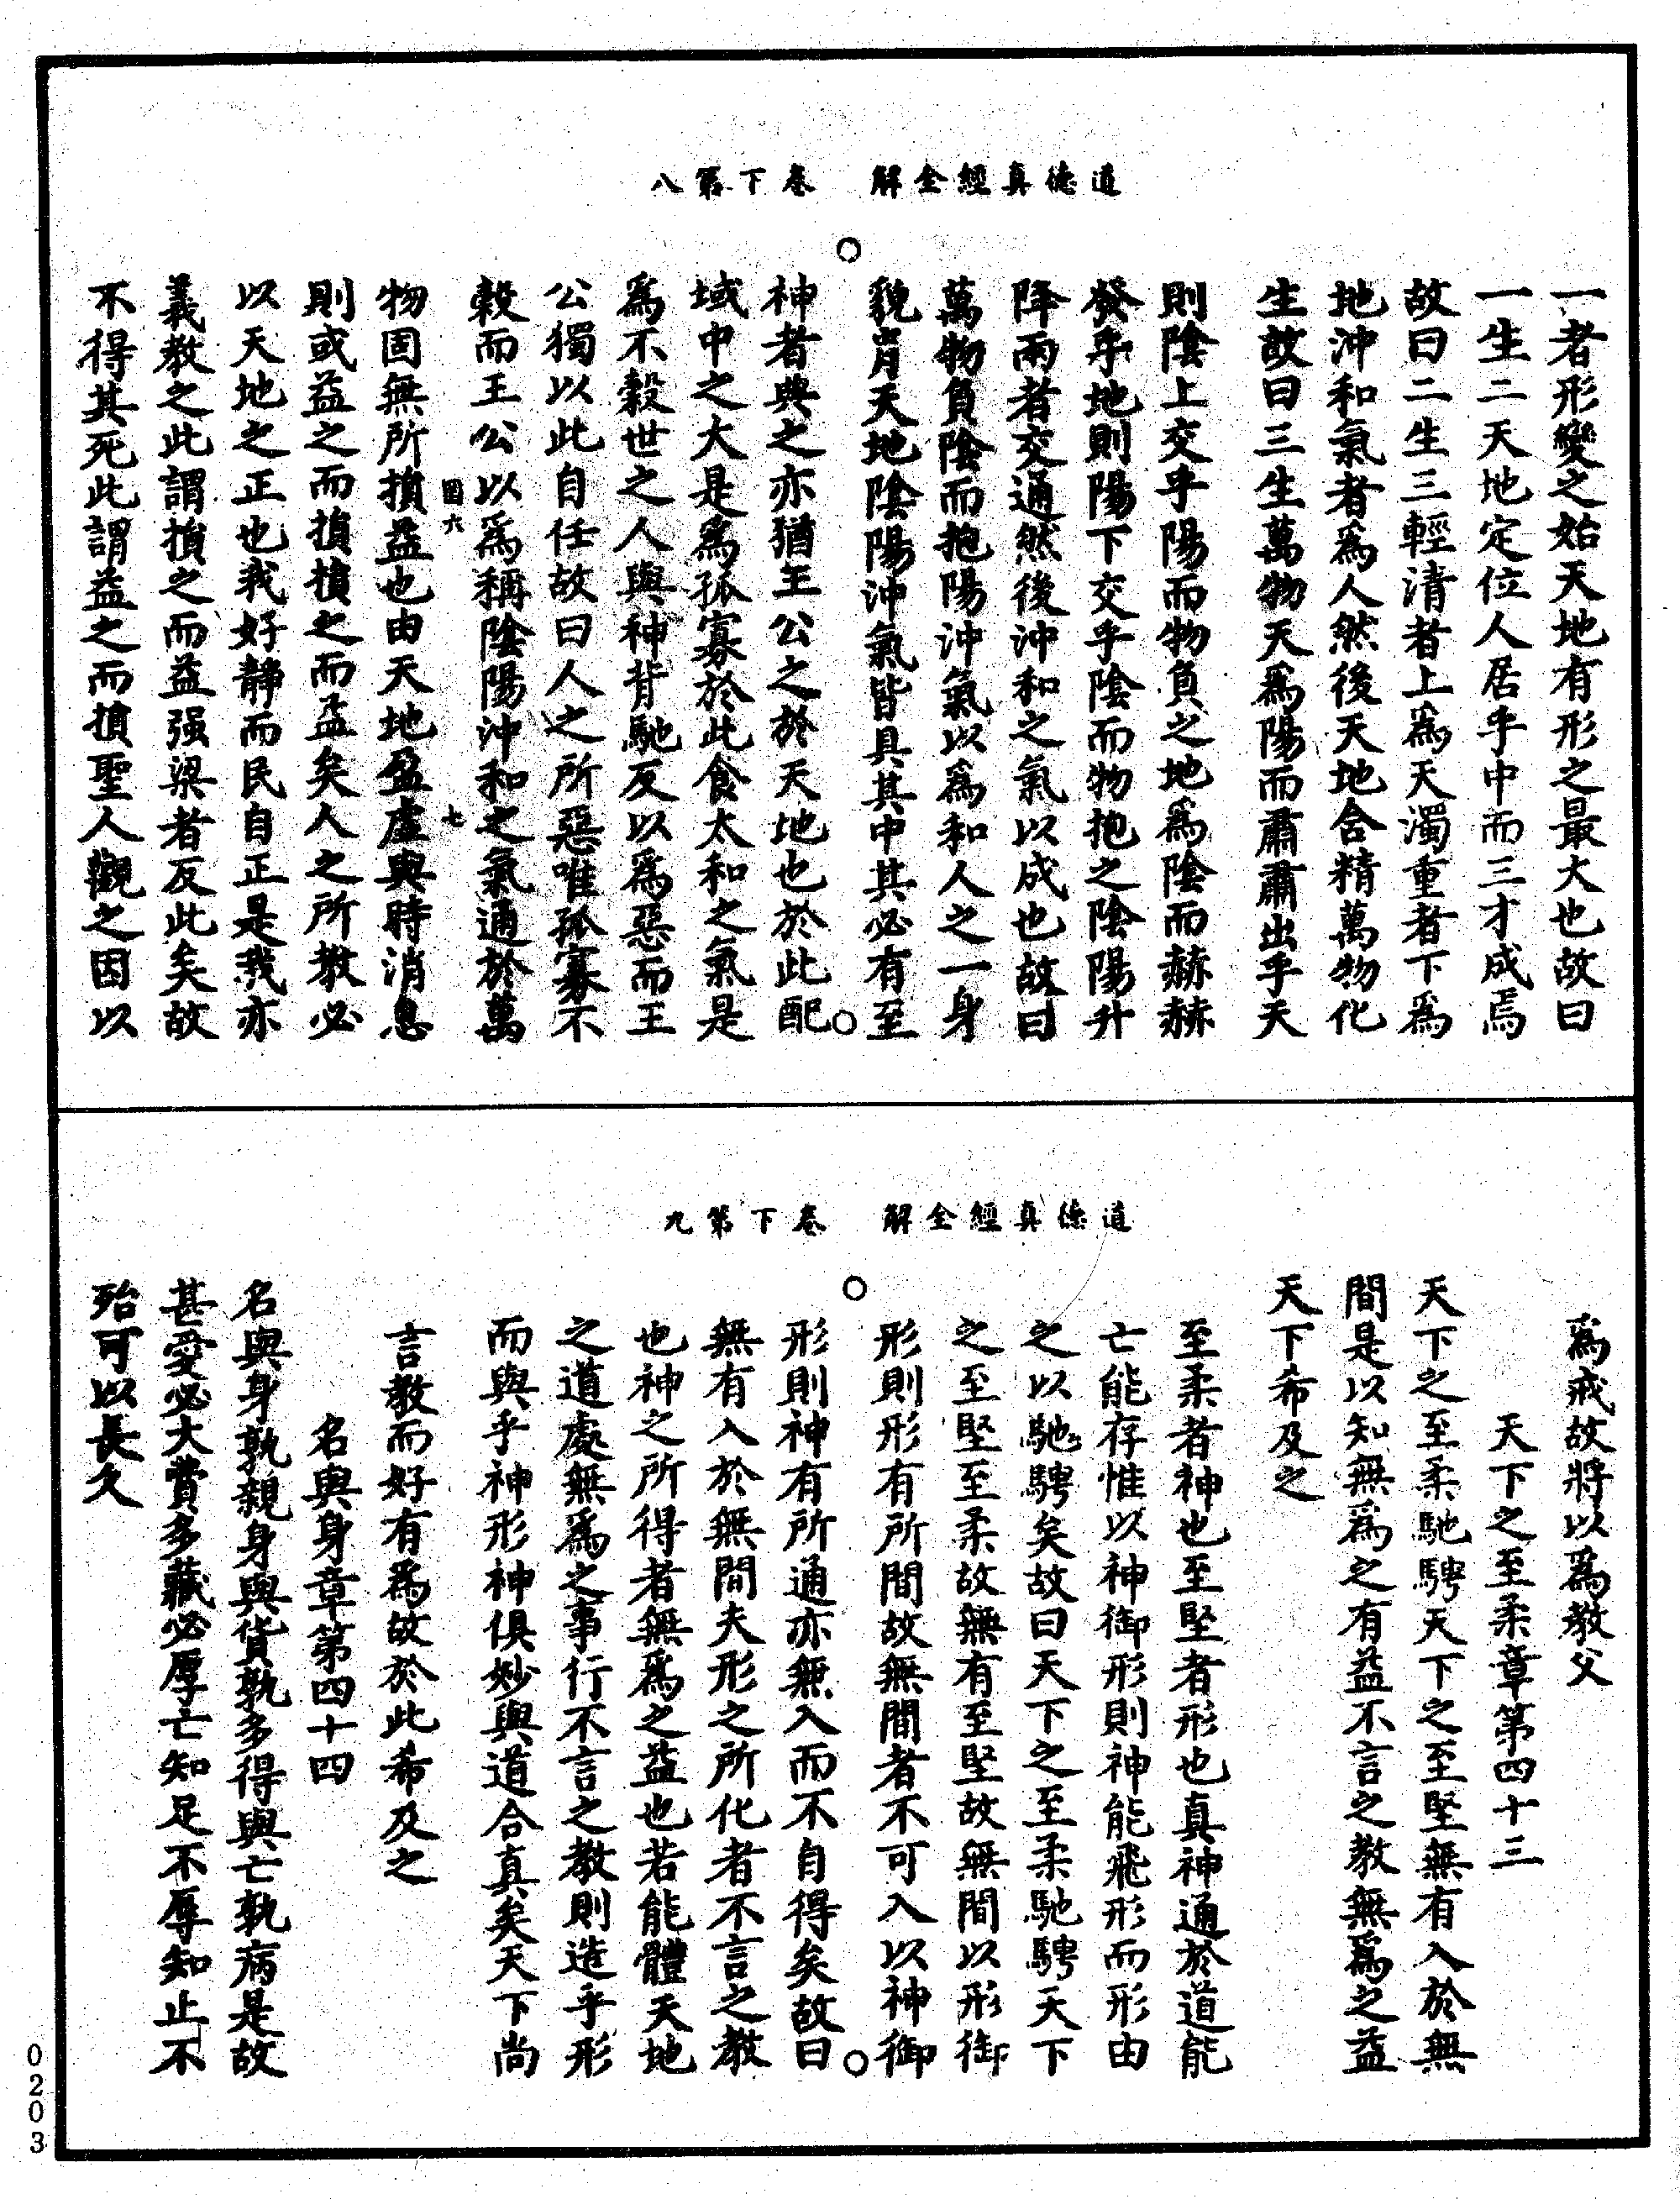 道德真經全解　卷下第八
一者形變之始天地有形之最大也故曰
一生二天地定位人居乎中而三才成焉
故曰二生三輕清者上爲天濁重者下爲
地沖和氣者爲人然後天地合精萬物化
生故曰三生萬物天爲陽而肅肅出乎天
則陰上交乎陽而物負之地爲陰而赫赫
發乎地則陽下交乎陰而物抱之陰陽升
降兩者交通然後沖和之氣以成也故曰
萬物負陰而抱陽沖氣以爲和人之一身
貌肖天地陰陽沖氣皆具其中其必有至
神者典之亦猶王公之於天地也於此配
域中之大是爲孤寡於此食太和之氣是
爲不穀世之人與神背馳反以爲惡而王
公獨以此自任故曰人之所惡唯孤寡不
穀而王公以爲稱陰陽沖和之氣通於萬
國六　七
物固無所損益也由天地盈虛與時消息
則或益之而損損之而益矣人之所教必
以天地之正也我好靜而民自正是我亦
義教之此謂損之而益强梁者反此矣故
不得其死此謂益之而損聖人觀之因以
道德真經全解　卷下第九
爲戒故將以爲教父
天下之至柔章第四十三
天下之至柔馳騁天下之至堅無有入於無
間是以知無爲之有益不言之教無爲之益
天下希及之
至柔者神也至堅者形也真神通於道能
亡能存惟以神御形則神能飛形而形由
之以馳騁矣故曰天下之至柔馳騁天下
之至堅至柔故無有至堅故無間以形御
形則形有所間故無間者不可入以神御
形則神有所通亦無入而不自得矣故曰
無有入於無間夫形之所化者不言之教
也神之所得者無爲之益也若能體天地
之道處無爲之事行不言之教則造乎形
而與乎神形神俱妙與道合真矣天下尚
言教而好有爲故於此希及之
名與身章第四十四
名與身孰親身與貨孰多得與亡孰病是故
甚愛必大費多藏必厚亡知足不辱知止不
殆可以長久
0203